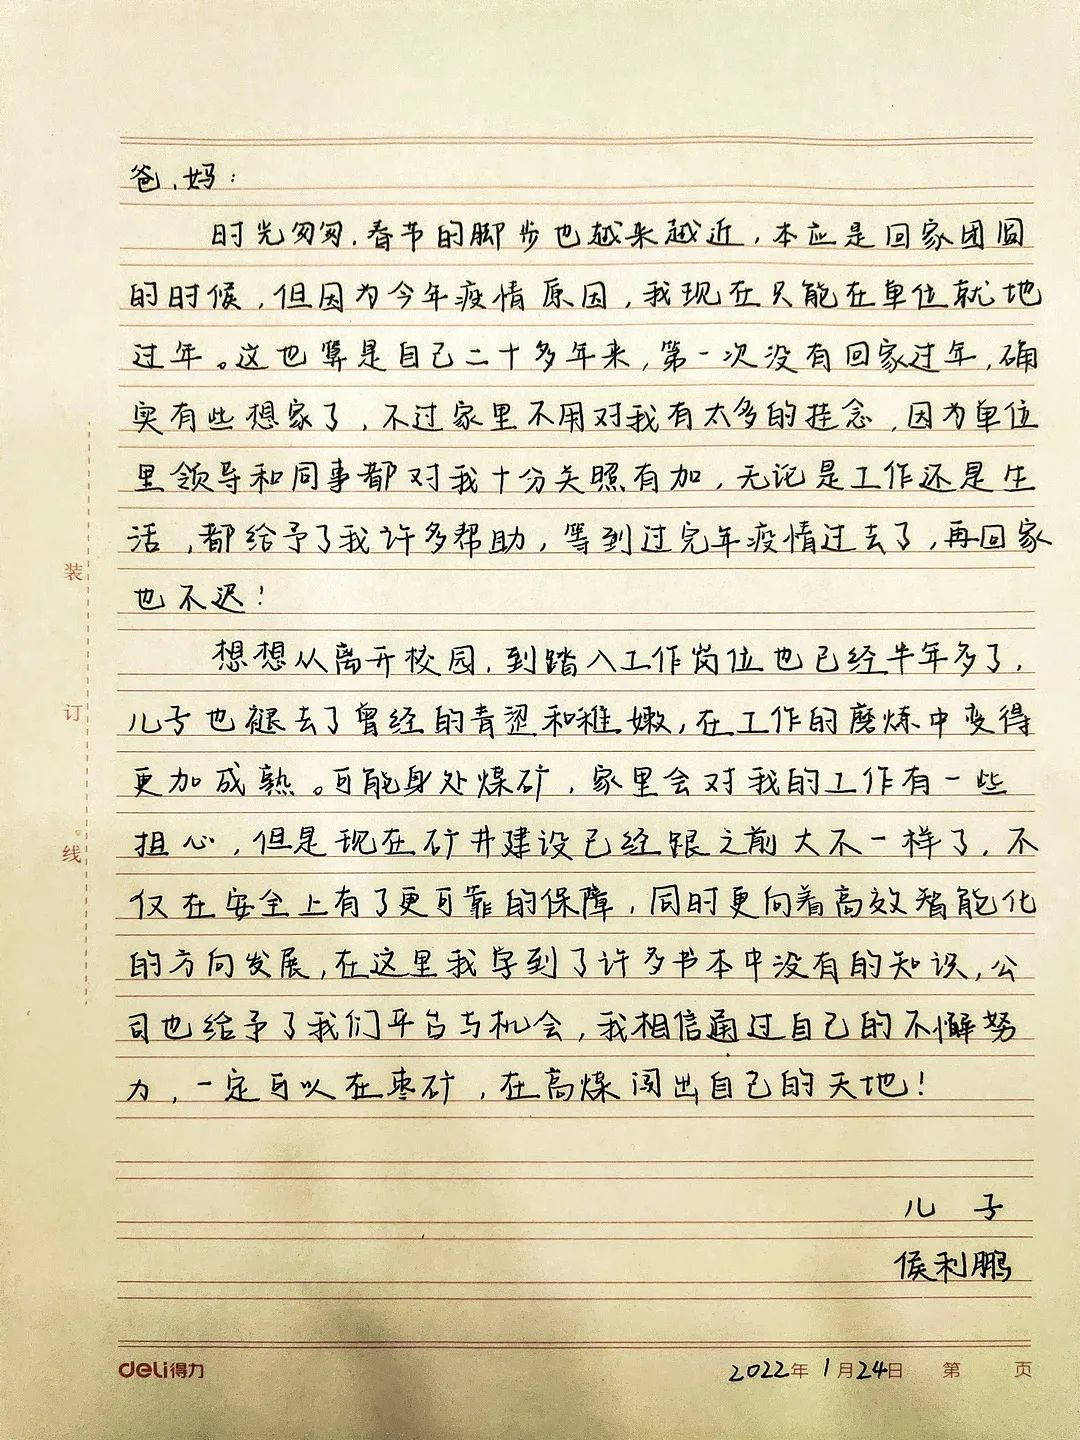 爸、妈：
时光匆匆，春节的脚步也越来越近，本应是回家团圆
的时候，但因为今年疫情原因，我现在只能在单位就地
过年。这也算是自己二十多年来，第一次没有回家过年，确
实有些想家了，不过家里不用对我有太多的挂念，因为单位
里领导和同事都对我十分关照有加，无论是工作还是生
活，都给予了我许多帮助，等到过完年疫情过去了，再回家
也不迟！
想想从离开校园，到踏入工作岗位也已经半年多了，
儿子也褪去了曾经的青涩和稚嫩，在工作的磨炼中变得
更加成熟。可能身处煤矿，家里会对我的工作有一些
担心，但是现在矿井建设已经跟之前大不一样了，不
仅在安全上有了更可靠的保障，同时更向着高效智能化
的方向发展，在这里我学到了许多书本中没有的知识，公
司也给予了我们平台与机会，我相信通过自己的不懈努
力，一定可以在枣矿，在高煤闯出自己的天地！
儿 子
侯利鹏
装
订
线
deli得力 2022年1月24日 第 页